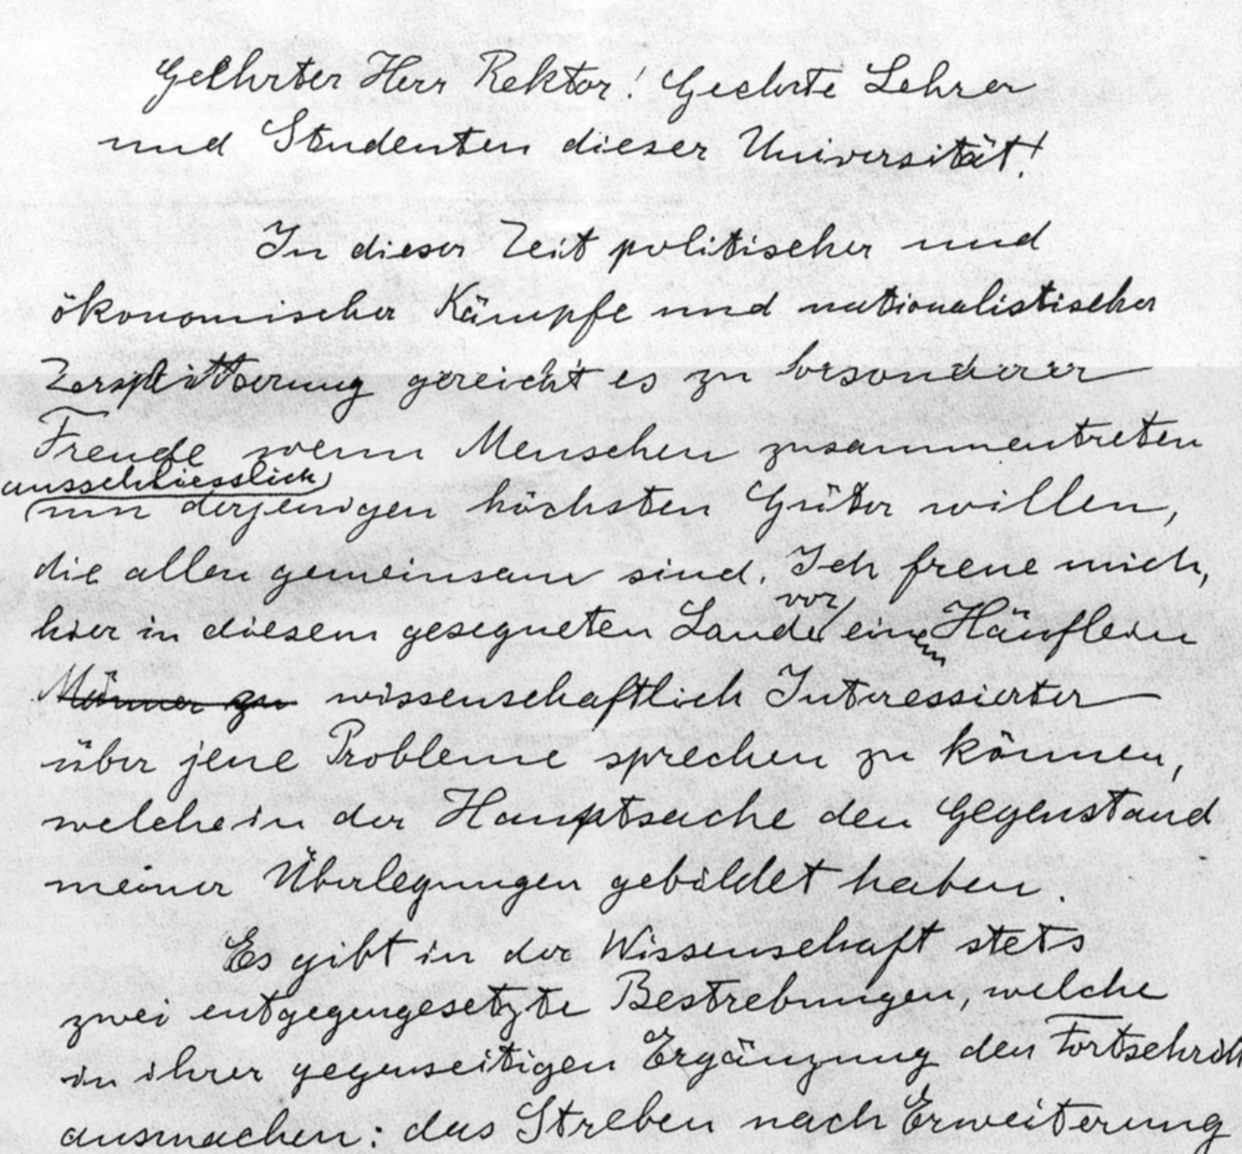 Geehrter Herr Rektor! Geehrte Lehrer
und Studenten dieser Universität!
In dieser Zeit politischer und
ökonomischer Kämpfe und nationalistischer
Zersplitterung gereicht es zu besonderer
Freude wenn Menschen zusammentreten
ausschliesslich
um derjenigen höchsten Güter willen,
die allen gemeinsam sind. Ich freue mich,
vor
hier in diesem gesegneten Lande einem Häuflein
Männer zu wissenschaftlich Interessierter
über jene Probleme sprechen zu können,
welche in der Hauptsache den Gegenstand
meiner Überlegungen gebildet haben.
Es gibt in der Wissenschaft stets
zwei entgegengesetzte Bestrebungen, welche
in ihrer gegenseitigen Ergänzung den Fortschritt
ausmachen: das Streben nach Erweiterung